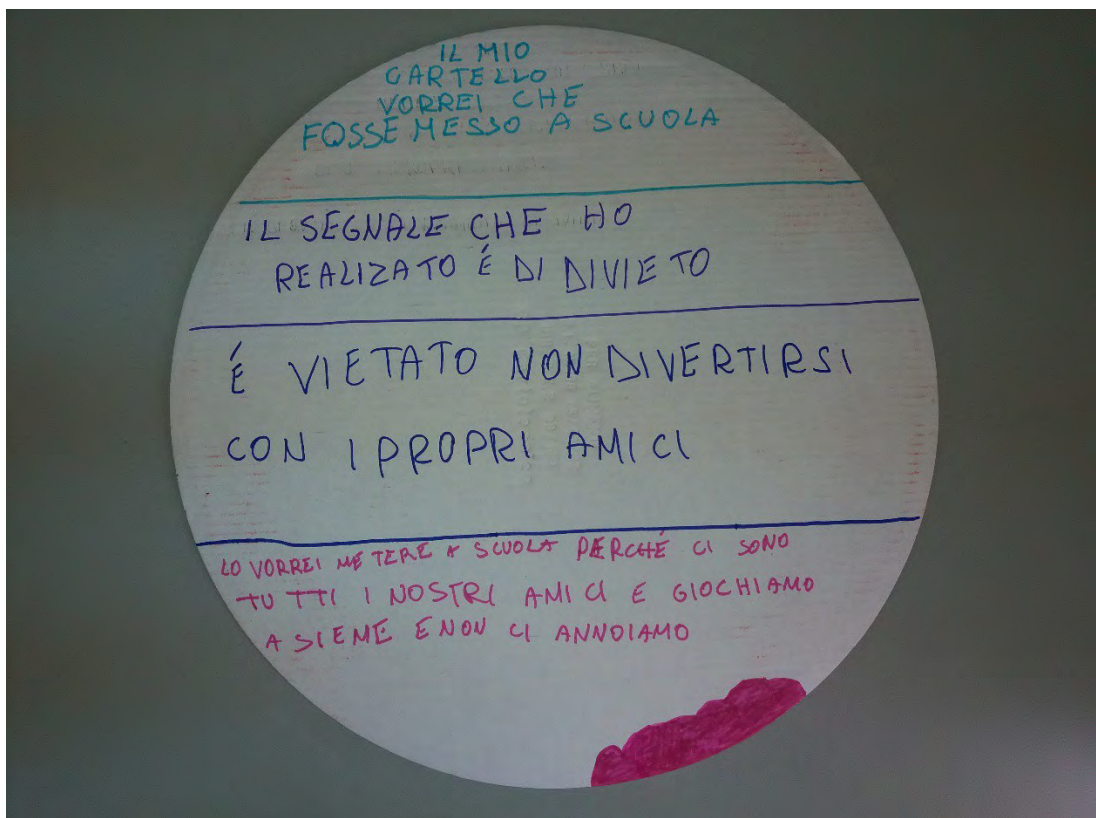 IL MIO
CARTELLO
VORREI CHE
FOSSE MESSO A SCUOLA
IL SEGNALE CHE HO
REALIZATO É DI DIVIETO
É VIETATO NON DIVERTIRSI
CON I PROPRI AMICI
LO VORREI METERE A SCUOLA PERCHÉ CI SONO
TUTTI I NOSTRI AMICI E GIOCHIAMO
ASIEME E NON CI ANNOIAMO